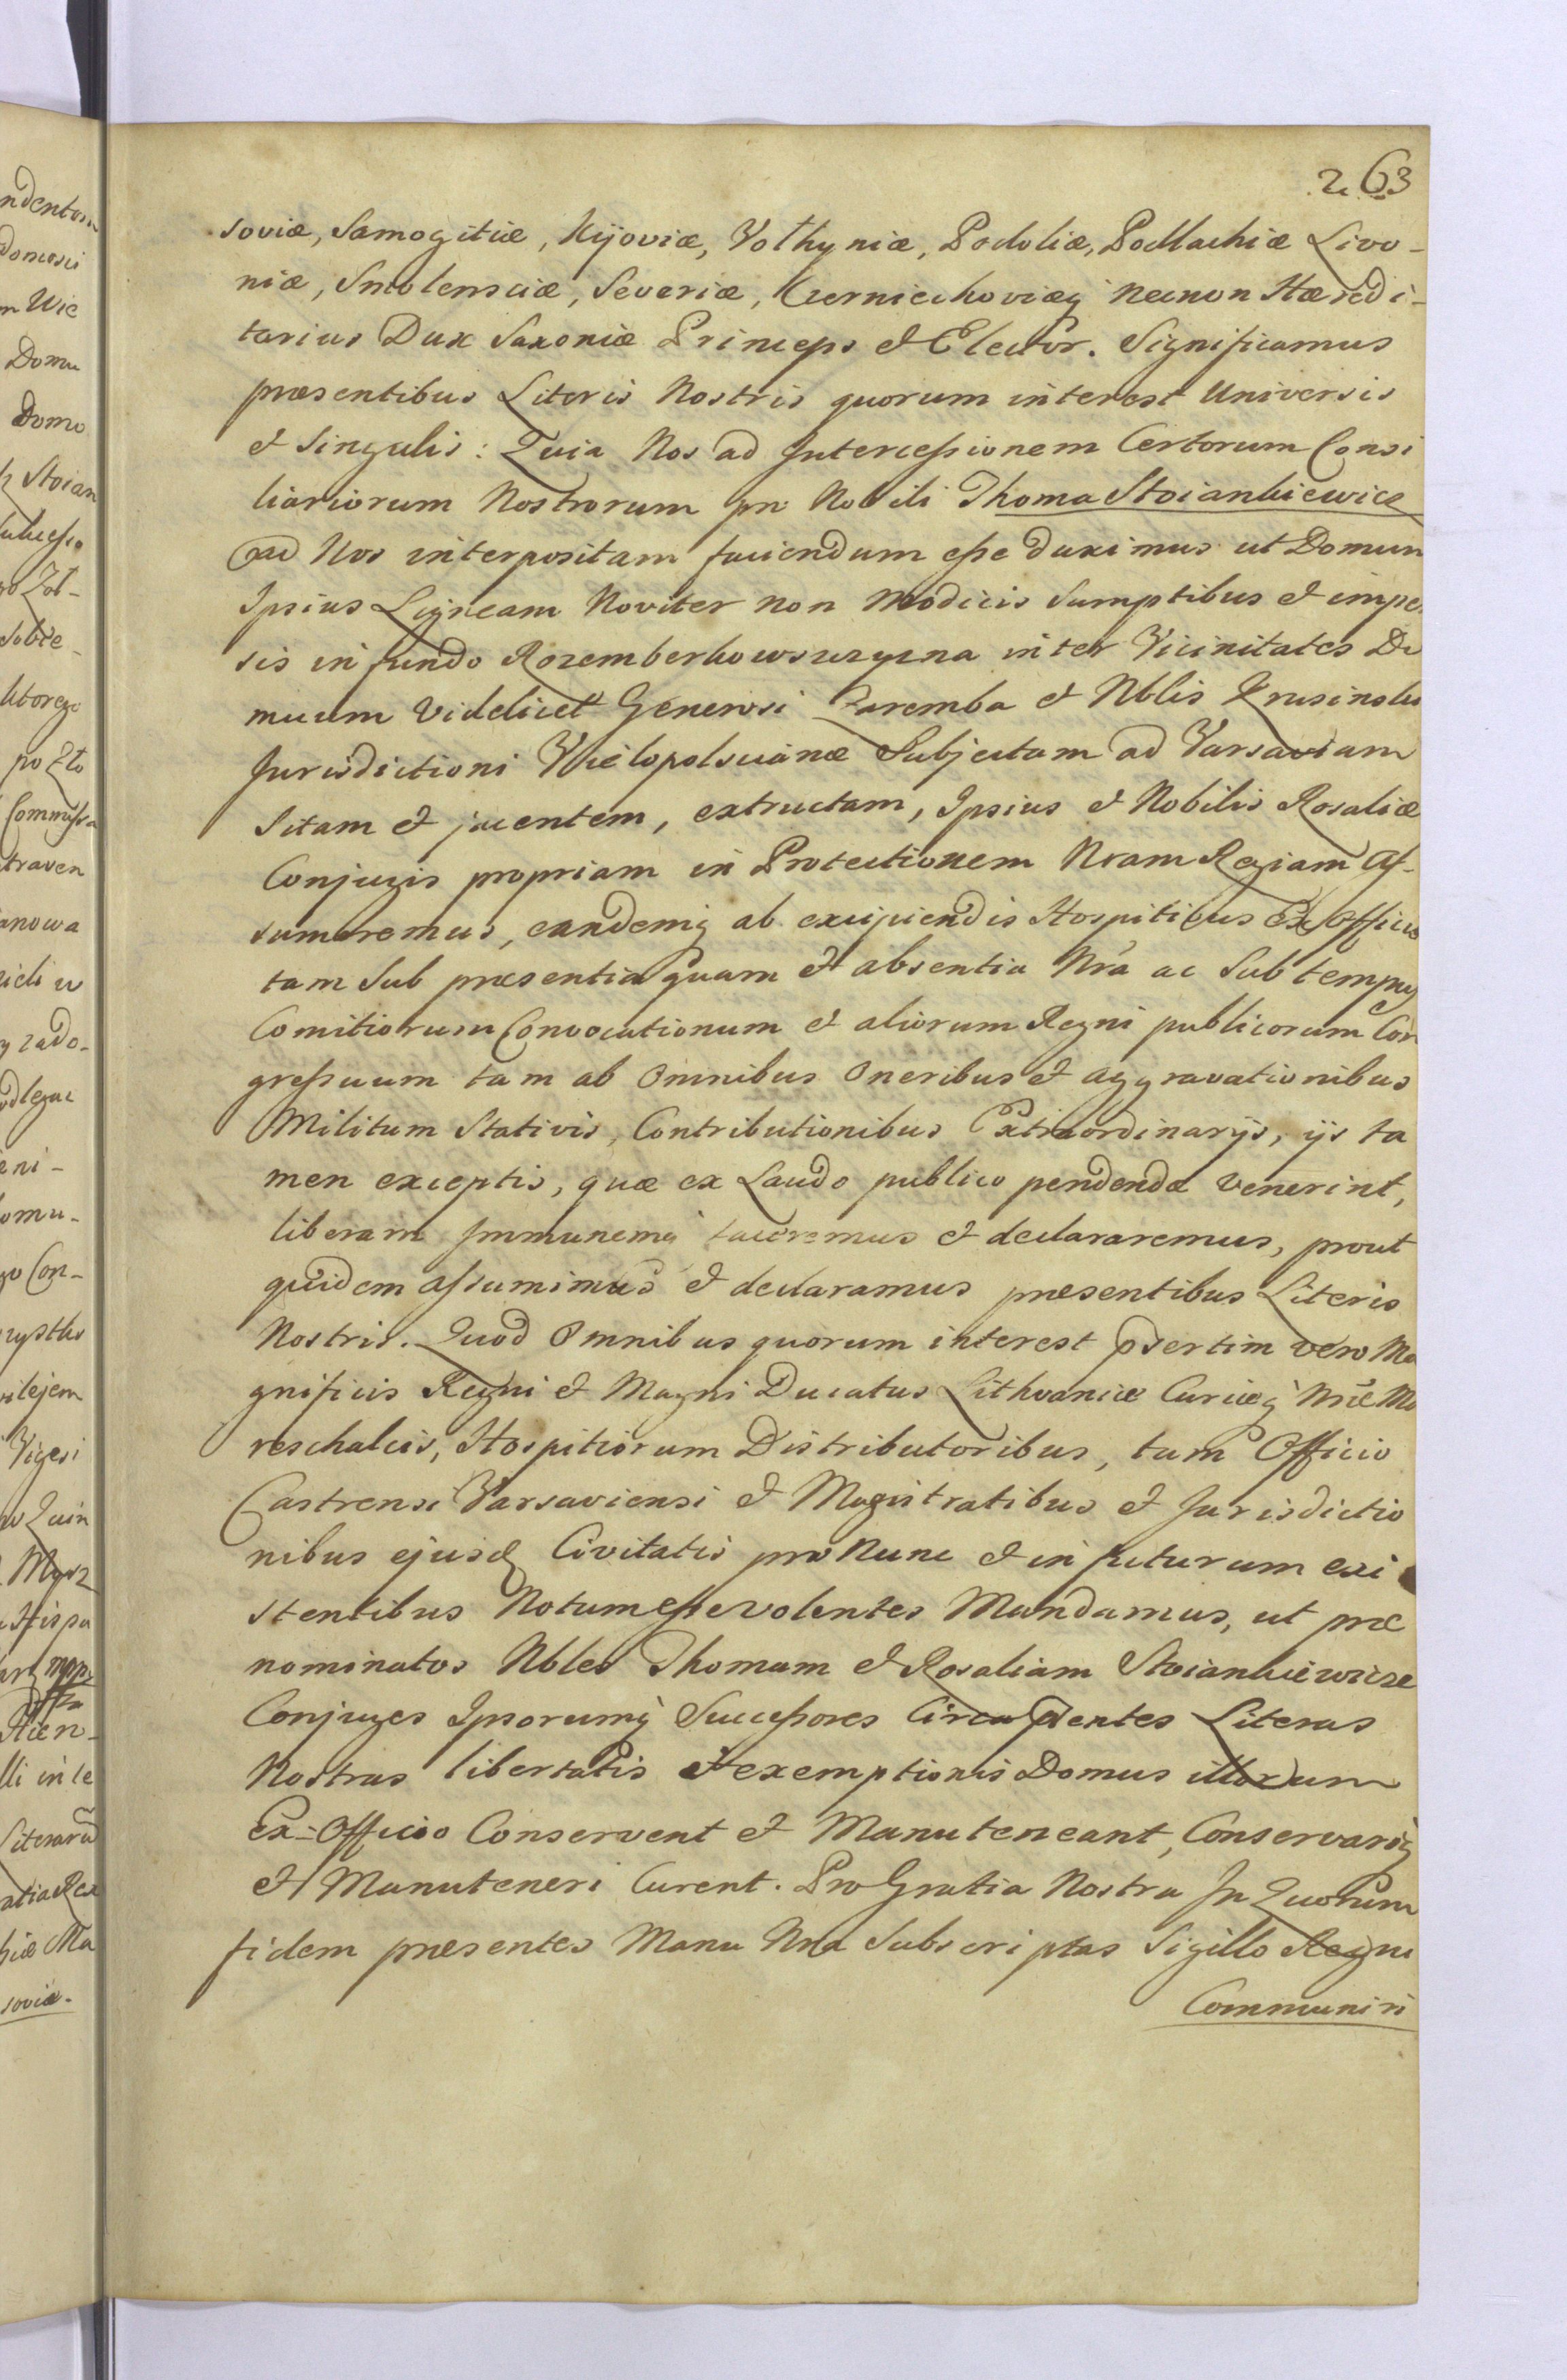 263
soviæ, Samogitiæ, Kijoviæ, Volhyniæ, Podoliæ, Podlachiæ Livo-
niæ, Smolensciæ, Severiæ, Czerniechoviæq necnon Hæredi-
tarius Dux Saxoniæ Princeps et Elector. Significamus
præsentibus Literis Nostris quorum interest Universis
et Singulis: Quia Nos ad Intercessionem Certorum Consi
liariorum Nostrorum pro Nobili Thoma Stoiankiewicz
ad Nos interpositam faciendum esse duximus ut Domum
Ipsius Ligneam Noviter non Modicis Sumptibus et impe
sis in fundo Rozemberkowszczyzna inter Vicinitates Do
muum Videlicet Generosi Zaremba et Nblis Krusinski
Jurisdictioni Wielopolscianæ Subjectam ad Varsaviam
Sitam et jacentem, extructam, Ipsius et Nobilis Rosaliæ
Conjugis propriam in Protectionem Nram Regiam As-
sumeremus, eandemq ab excipiendis Hospitibus Ex Officio
tam Sub præsentia quam et absentia Nra ac Sub tempus
Comitiorum Convocationum et aliorum Regni publicorum Con
gressuum tam ab Omnibus Oneribus et aggravationibus
Militum Stativis, Contributionibus Extraordinarijs, ijs ta
men exceptis, quæ ex Laudo publico pendendæ Venerint,
liberam Immunemq faceremus et declararemus, prout
quidem assumimus et declaramus præsentibus Literis
Nostris. Quod Omnibus quorum interest psertim vero Ma
gnificis Regni et Magni Ducatus Lithvaniæ Curiæq Nræ Ma
reschalcis, Hospitiorum Distributoribus, tum Officio
Castrensi Varsaviensi et Magistratibus et Jurisdictio
nibus ejusd Civitatis pro Nunc et in futurum exi
stentibus Notum esse volentes Mandamus, ut præ
nominatos Nbles Thomam et Rosaliam Stoiankiewicze
Conjuges Ipsorumq Successores Circa pntes Literas
Nostras libertatis et exemptionis Domus illorum
Ex-Officio Conservent et Manuteneant, Conservariq
et Manuteneri Curent. Pro Gratia Nostra In Quorum
fidem præsentes Manu Nra Subscriptas Sigillo Regni
Communiri